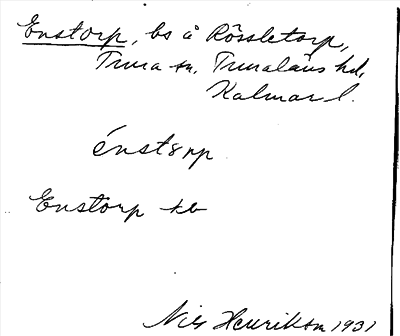 Enstorp, bs å Rössletorp,
Tuna sn, Tunaläns hd,
Kalmar l.
énstɜrp
Enstorp kb
Nils Henrikson 1931